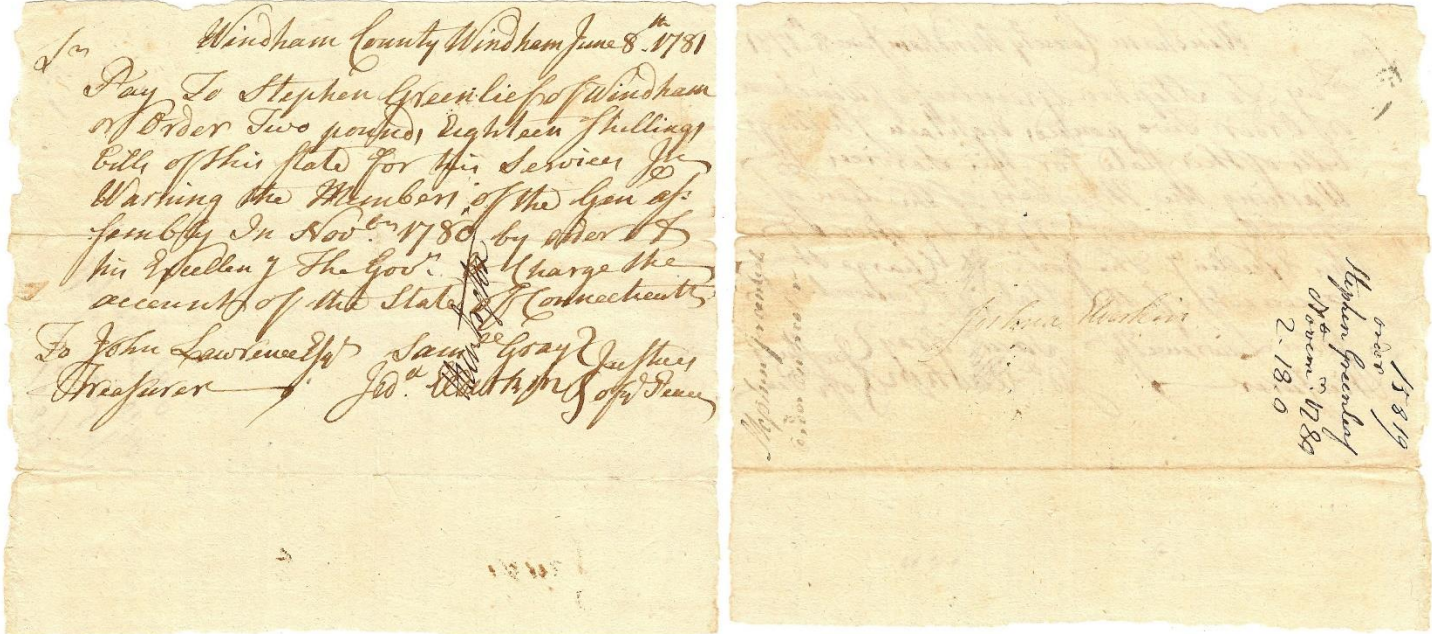 Sr Windham County Windham June 8th 1781
Pay To Stephen Greenlief of Windham
or Order Two pounds Eighteen Shillings
bills of this State for his Services In
Warning the Members of the Gen As-
sembly In Novbr 1780 by order of
his Excellency The Govr Charge the
account of the State of Connecticut
To John Lawrence Esqr Samll Gray Justices
Treasurer Jedh Elderkin of ye Peace
15819
order
Stephen Greenleaf
Novembr 1780
2-18-0